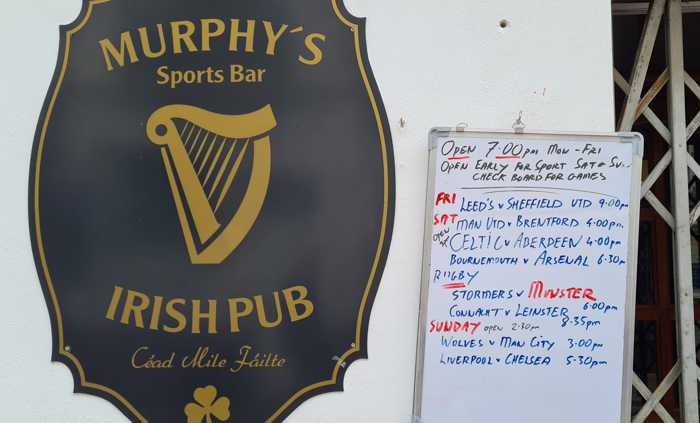 MURPHY´S
Sports Bar
IRISH PUB
Céad Mile Fáilte
OPEN 7.00pm MON - FRI
OPEN EARLY FOR SPORT SAT & SU..
CHECK BOARD FOR GAMES
FRI LEED'S v SHEFFIELD UTD 9.00pm
SAT MAN UTD v BRENTFORD 4.00pm.
OPEN CELTIC v ABERDEEN 4.00pm
BOURNEMOUTH v ARSENAL 6.30pm
RUGBY
STORMERS v MUNSTER
6.00pm
CONNACHT v LEINSTER 8.35pm
SUNDAY OPEN 2:30pm
WOLVES v MAN CITY 3.00pm
LIVERPOOL v CHELSEA 5.30pm